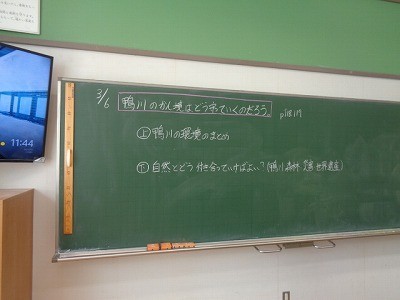 11:44
3/6 鴨川のかん境はどう守っていくのだろう。 p118 119
㊤ 鴨川の環境のまとめ
㊦ 自然とどう付き合っていけばよい?(鴨川 森林 災害 世界遺産)